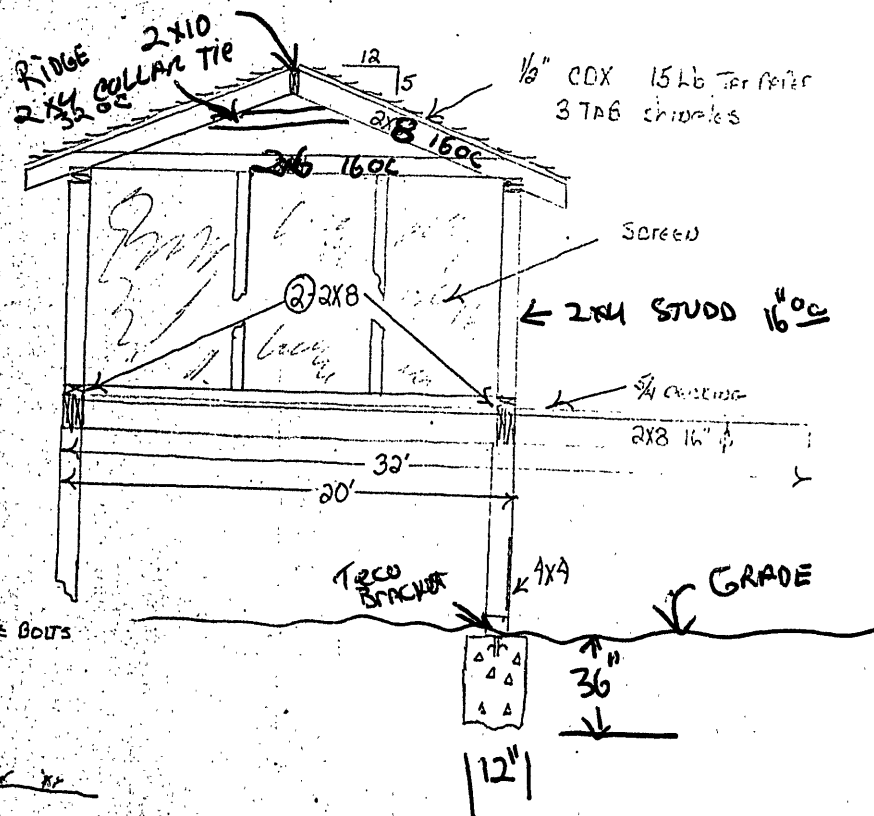 RIDGE 2X10
2X4 COLLAR TIE
32 OC
12
5
1/2" CDX 15 Lb TAR PAPER
3 TAB SHINGLES
2X8 16OC
2X6 16OC
SCREEN
② 2X8
2X4 STUDD 16" OC
5/4 DECKING
2X8 16"
32'
20'
TECO
BRACKET
4X4
GRADE
BOLTS
36"
12"